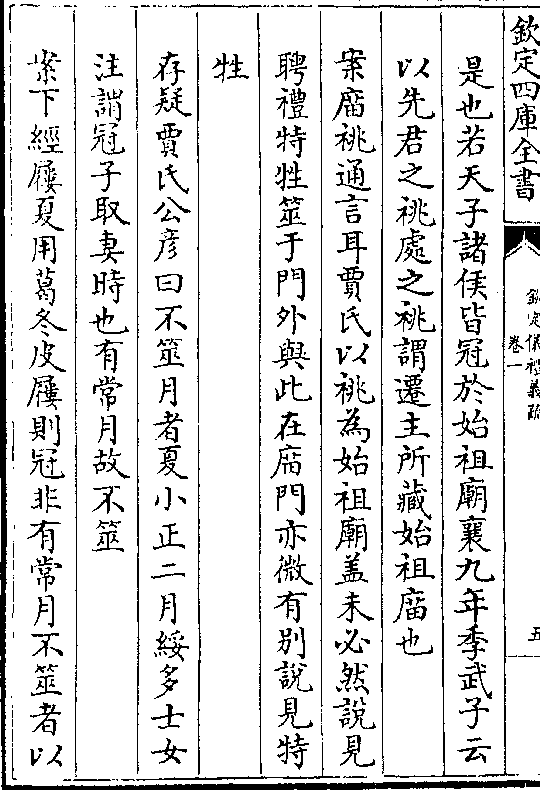 欽定四庫全書
欽定儀禮義疏
卷一
五
是也若天子諸侯皆冠於始祖廟襄九年季武子云
以先君之祧處之祧謂遷主所藏始祖庿也
案庿祧通言耳賈氏以祧為始祖廟盖未必然說見
聘禮特牲筮于門外與此在庿門亦微有別說見特
牲
存疑賈氏公彦曰不筮月者夏小正二月綏多士女
注謂冠子取妻時也有常月故不筮
案下經屨夏用葛冬皮屨則冠非有常月不筮者以